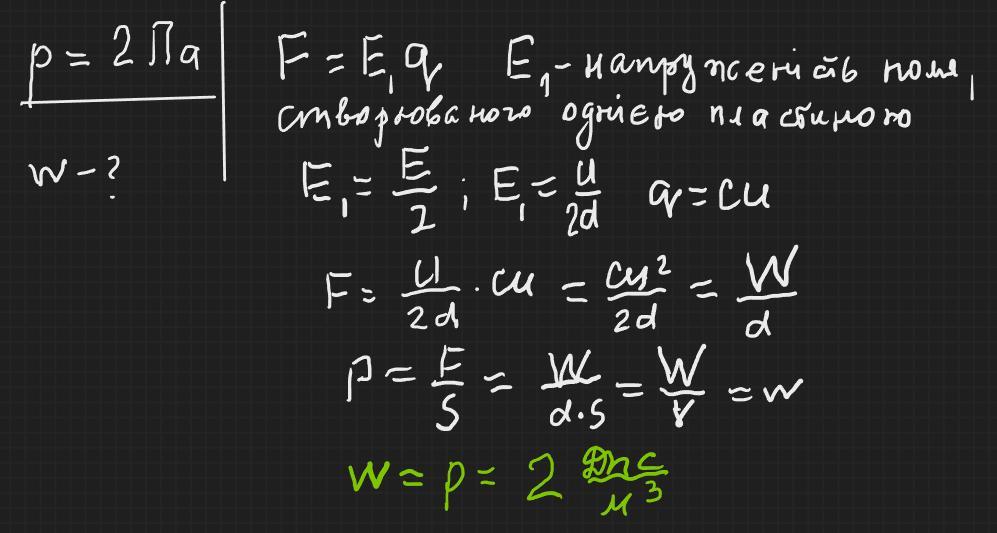 p = 2 Па
w - ?
F = E₁q E₁ - напруженість поля,
створюваного однією пластиною
E₁ = E/2 ; E₁ = u/2d q = cu
F = u/2d · cu = cu²/2d = W/d
p = F/S = W/d·S = W/V = w
w = p = 2 Дж/м³